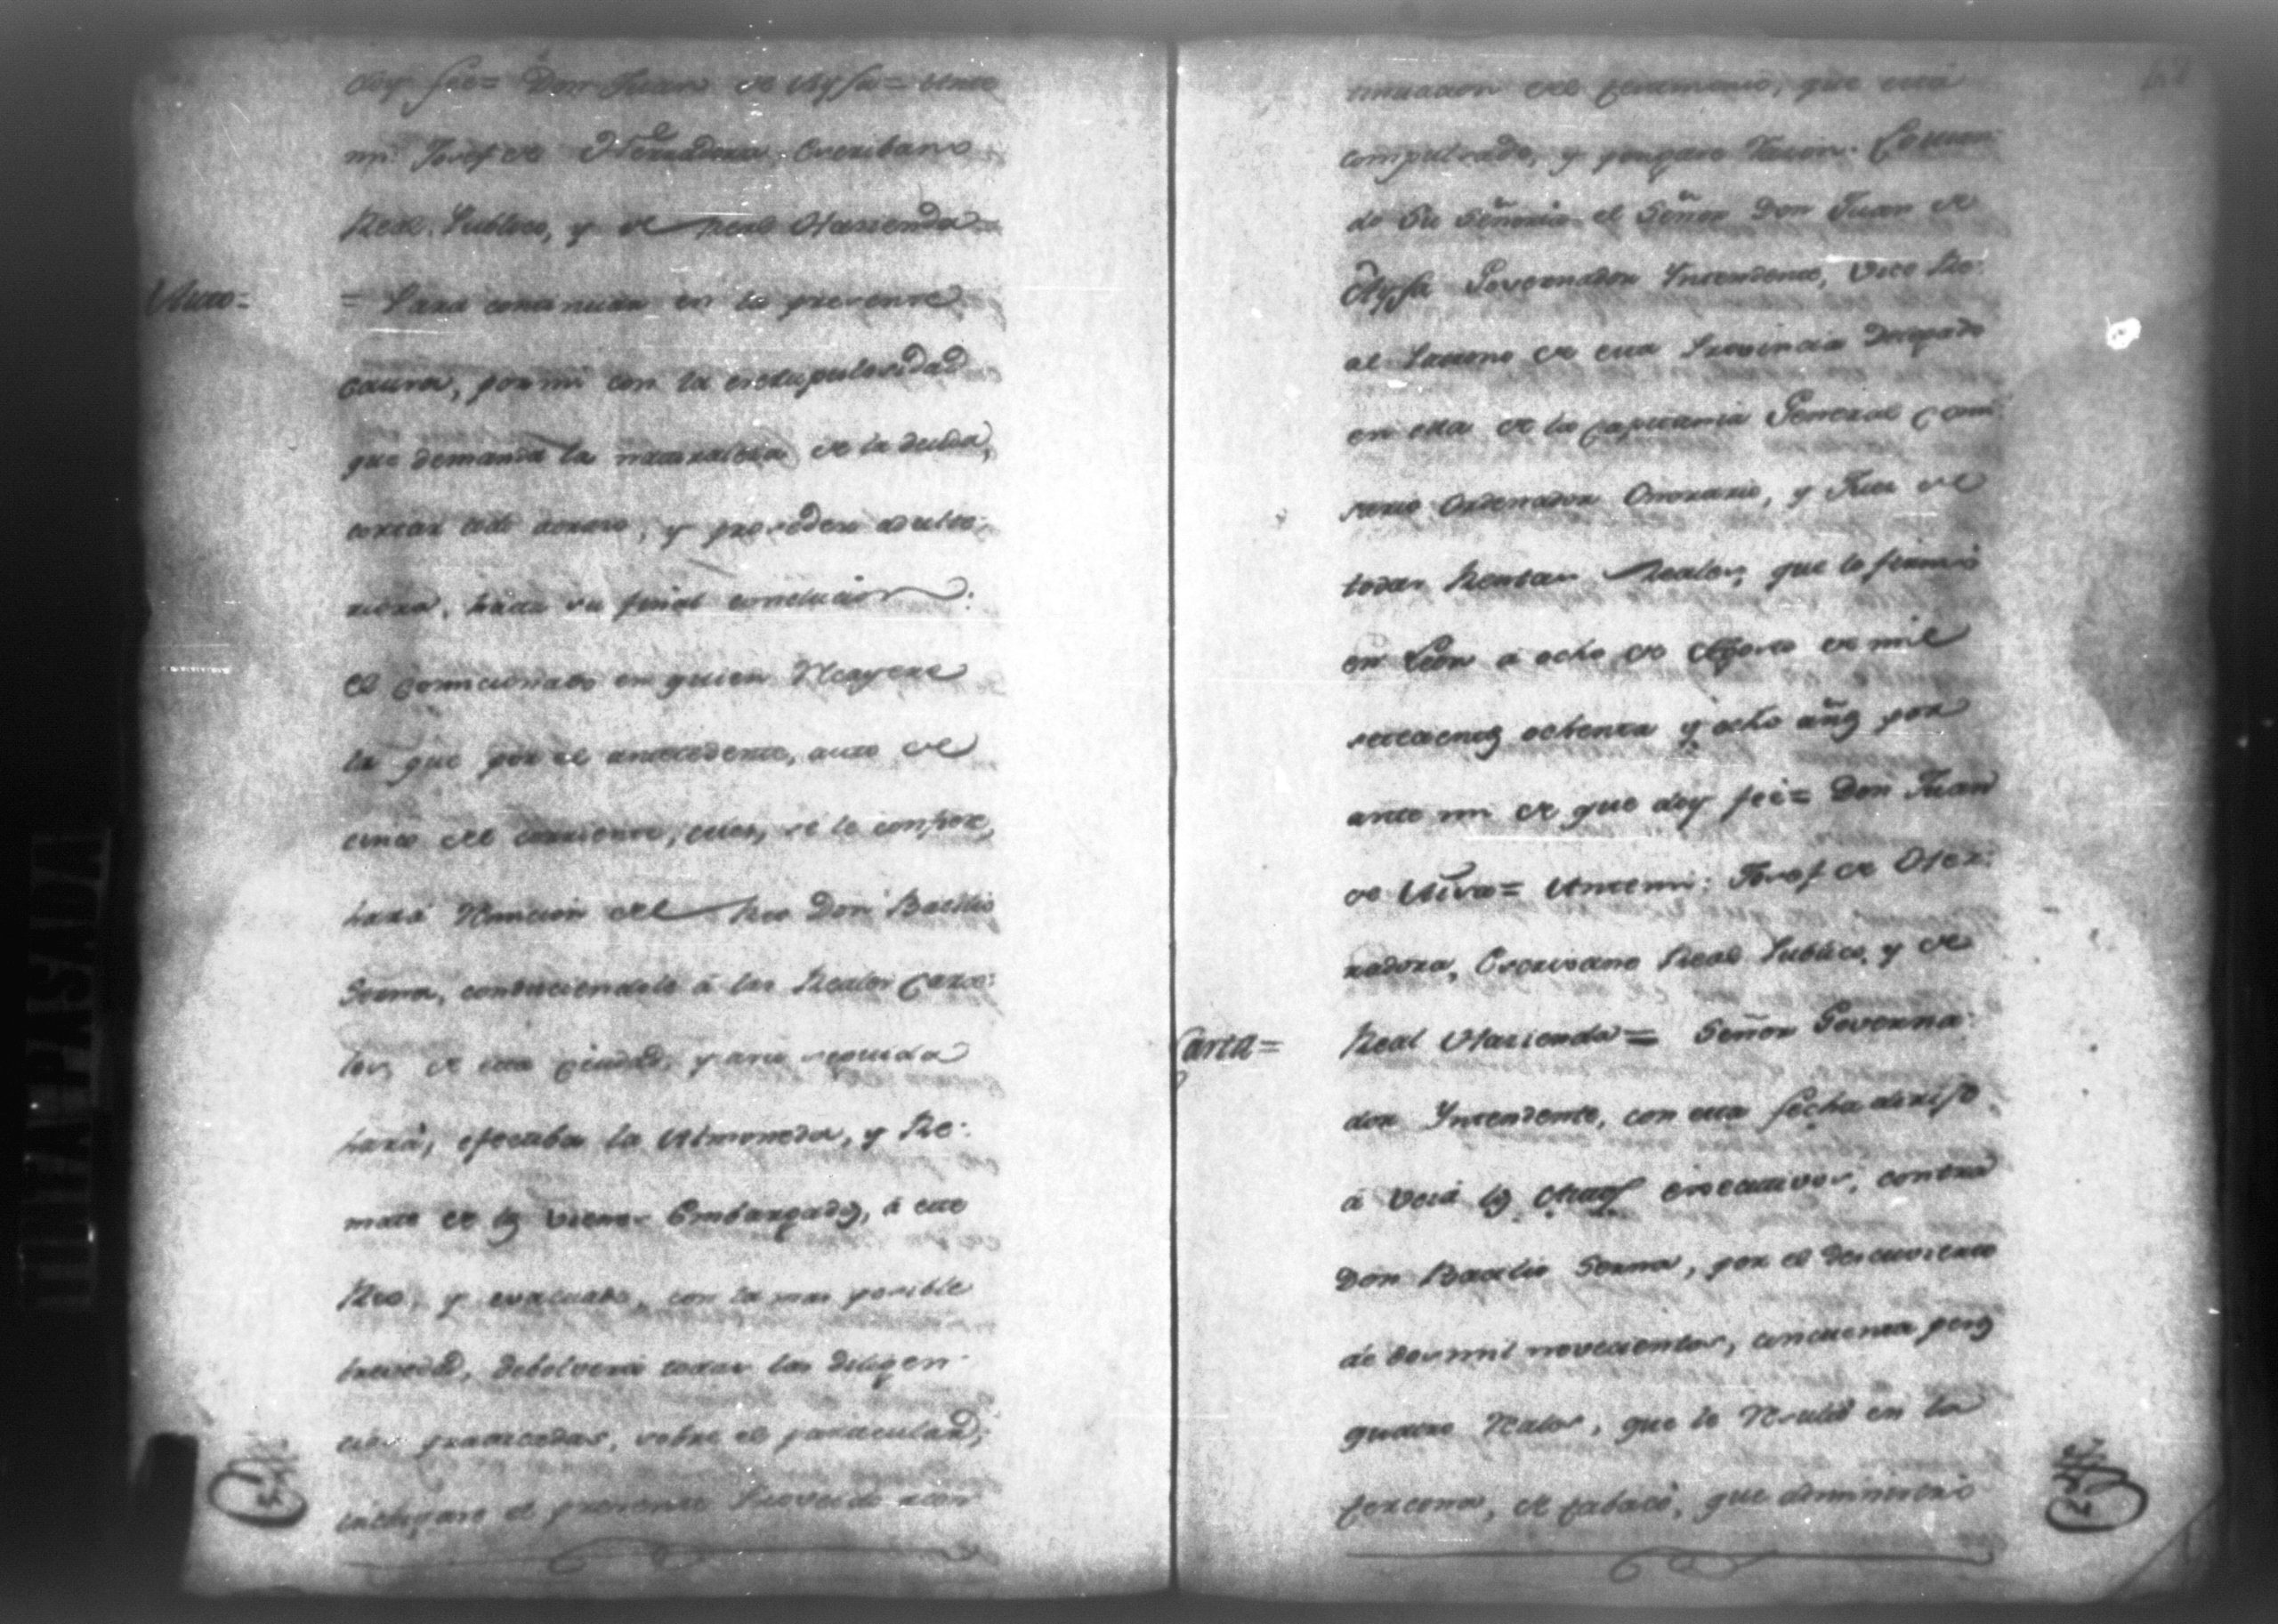 doy fee= Don Juan de Aysa= Ante
mi: Josef de Herradora Escribano
Real Publico, y de Real Hazienda=
Auto=
= Para continuar en la presente
Causa, por mi con la escrupulosidad
que demanda la naturaleza de la deuda,
cortar todo atraso, y proceder
hasta su final conclucion.
El comicionado en quien Recayere
la que por el antecedente, auto del
cinco del corriente, se le confiere,
hará Remicion del Reo Don Bacilio
Serna, conduciendole á las Reales Carce:
les, de esta Ciudad, y acto seguido
hará, efectiba la Almoneda, y Re:
mate de los vienes Embargados, á este
Reo, y evacuado, con la mas posible
brevedad, debolverá todas las diligen
cias practicadas, sobre el particular;
el presente Proveido
del testimonio, que está
compulsado, y pongase Razon.
do Su Señoria el Señor Don Juan de
Aysa Governador Yntendente, Vice Re:
al Patrono de esta Provincia
en esta de la Capitania General Comi
sario Ordenador Onorario, y Juez de
todas Rentas Reales, que lo firmó
en Leon a ocho de Agosto de mil
setecientos ochenta y ocho años por
ante mi de que doy fee= Don Juan
de Aysa= Antemi: Josef de Her:
radora, Escrivano Real Publico, y de
Carta=
Real Hazienda= Señor Governa:
dor Yntendente, con esta fecha dirijo
á Vsia los Autos executivos, contra
Don Bacilio Serna, por el descuvierto
de dos mil novecientos, cincuenta pesos
quatro Reales, que le Resultó en la
tercena, de tabaco, que administró